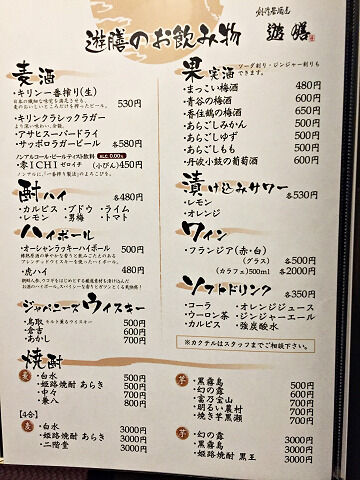 創作居酒屋
遊膳
遊膳のお飲み物
麦酒
・キリン一番搾り(生) 530円
・キリンクラシックラガー
・アサヒスーパードライ
・サッポロラガービール 各580円
ノンアルコール・ビールテイスト飲料
・零ICHI ゼロイチ (小びん)450円
酎ハイ 各480円
・カルピス ・ブドウ ・ライム
・レモン ・男梅 ・トマト
ハイボール
・オーシャンラッキーハイボール 500円
・虎ハイ 480円
ジャパニーズウイスキー
・鳥取 500円
・倉吉 600円
・あかし 700円
焼酎
麦
・白水 500円
・姫路焼酎 あらき 500円
・中々 700円
・兼八 800円
【4合】
麦
・白水 3000円
・姫路焼酎 あらき 3000円
・二階堂 3000円
果実酒
ソーダ割り・ジンジャー割りも
できます。
・まっこい梅酒 480円
・青谷の梅酒 600円
・香住鶴の梅酒 650円
・あらごしみかん 500円
・あらごしゆず 500円
・あらごしもも 500円
・丹波小鼓の葡萄酒 600円
漬け込みサワー 各530円
・レモン
・オレンジ
ワイン
・フランジア(赤・白)
(グラス) 各500円
(カラフェ)500ml 各2000円
ソフトドリンク 各350円
・コーラ ・オレンジジュース
・ウーロン茶 ・ジンジャーエール
・カルピス ・強炭酸水
※カクテルはスタッフまでご相談下さい。
芋
・黒霧島 500円
・幻の露 500円
・富乃宝山 700円
・明るい農村 700円
・焼き芋黒瀬 700円
芋
・幻の露 3000円
・黒霧島 3000円
・姫路焼酎 黒王 3000円